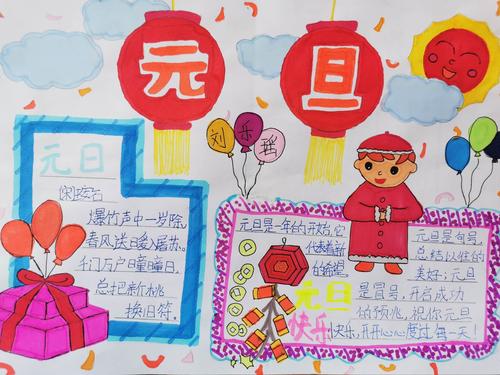 元旦
刘乐
元日
爆竹声中一岁除,
春风送暖入屠苏。
千门万户曈曈日,
总把新桃
换旧符。
元旦是一年的开始,它
代表着新
的希望
元旦
快乐
元旦是句号,
总结以往的
美好;元旦
是冒号,开启成功
的预兆,祝你元旦
快乐,开开心心度过每一天!